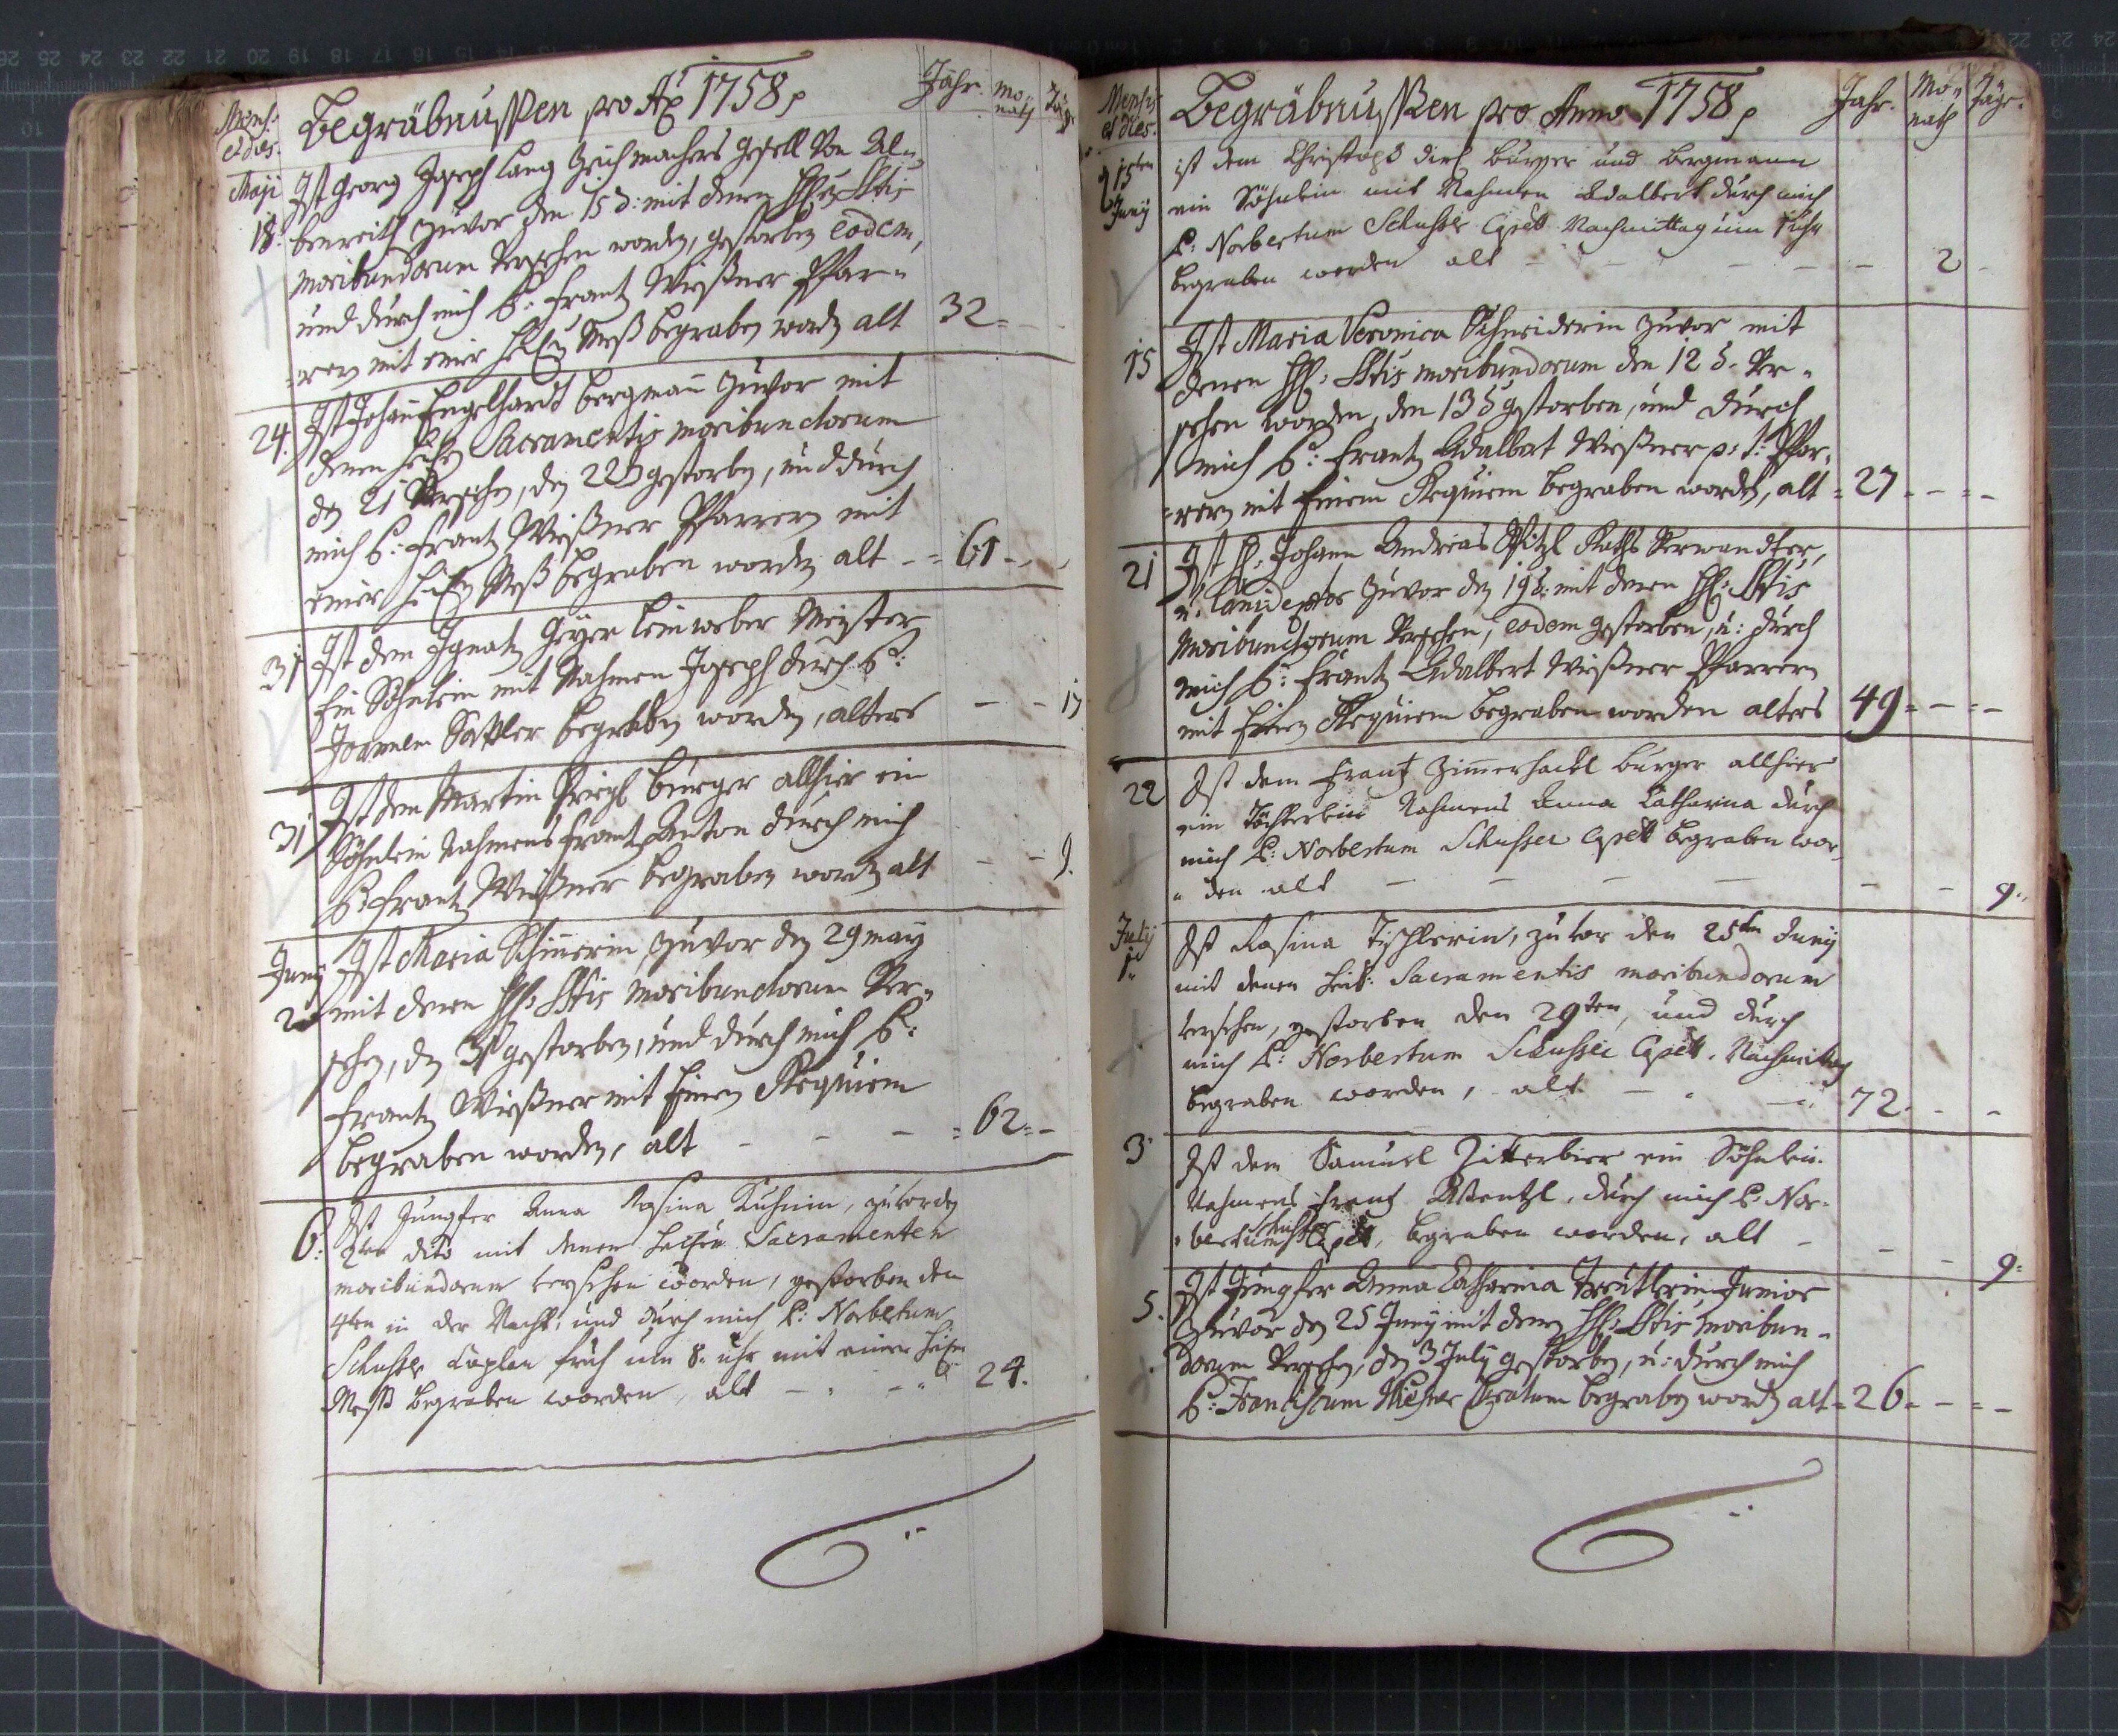 Mens: et dies.
Begräbnussen pro Ao 1758
Jahr. Mo= nath Täge
Maji 18. Ist Georg Joseph Lang Zeichmachers gesell von Al=
benreith zuvor den 15 d: mit denen hh: Sctis
moribundorum versehen worden, gestorben eodem,
und durch mich P: Frantz Wießner Pfar=
=rern mit einer heilgen Meß begraben worden alt 32
24. Ist Johann Engelhardt bergman zuvor mit
denen heiligen Sacramentis moribundorum
den 21 versehen, den 22 d gestorben, und durch
mich P: Frantz Wießner Pfarrern mit
einer heilgen Meß begraben worden alt 61
31 Ist dem Ignatz Geyer leinweber Meister
Ein Söhnlein mit Nahmen Joseph durch P:
Sattler begraben worden, alters
31 Ist dem Martin burger allhier ein
Söhnlein Nahmens Frantz Anton durch mich
P: Frantz Wießner begraben worden alt 9.
Juny 2. Ist Maria zuvor den 29 may
mit denen hh: Sctis moribundorum ver=
sehen, den 31 gestorben, und durch mich P:
Frantz Wießner mit Einen Requiem
begraben worden, alt 62
6: Ist Jungfer Anna Rosina Kuhnin, zuvor den
dito mit denen Heilgen Sacramenten
moribundorum versehen worden, gestorben den
4ten in der Nacht, und durch mich P: Norbertum
Schusser Caplan früh um 8. uhr mit einer heilgen
Meß begraben worden, alt 24.
Mensis et dies.
Begräbnussen pro Anno 1758
Jahr. Mo= nath Täge.
15ten Juny ist dem Christoph burger und bergmann
ein Söhnlein mit Nahmen Adalbert durch mich
P: Norbertum Schusser Capell: Nachmittag um 1 uhr
begraben worden alt 2
15 Ist Maria Veronica Schneiderin zuvor mit
denen hh: Sctis moribundorum den 12 d. ver=
sehen worden, den 13 d gestorben, und durch
mich P: Frantz Adalbert Wießner p: t: Pfar=
=rern mit Einem Requiem begraben worden, alt 27
21 Ist H: Johann Andreas Pitzl Raths Verwandter,
u. zuvor den 19 d: mit denen hh: Sctis
moribundorum versehen, eodem gestorben, u: durch
mich P: Frantz Adalbert Wießner Pfarrern
mit Einen Requiem begraben worden alters 49
22 Ist dem Frantz Zimmerhackl burger allhier
ein Töchterlein Nahmens Anna Catharina durch
mich P: Norbertum Schusser Capell begraben wor=
=den alt 9.
July 1. Ist Rosina Tischlerin, zuvor den 25ten Juny
mit denen heil: Sacramentis moribundorum
versehen, gestorben den 29ten, und durch
mich P: Norbertum Schusser Capell. Nachmittag
begraben worden, alt 72.
3 Ist dem Samuel Zitterbier ein Söhnlein
Nahmens Frantz Wentzl, durch mich P: Nor=
=bertum Schusser Capell, begraben worden, alt 9.
5. Ist Jungfer Anna Catharina Junior
zuvor den 25 Juny mit denen hh: Sctis moribun=
dorum versehen, den 3 July gestorben, u: durch mich
P: Franciscum Wiesner Curatum begraben worden alt 26